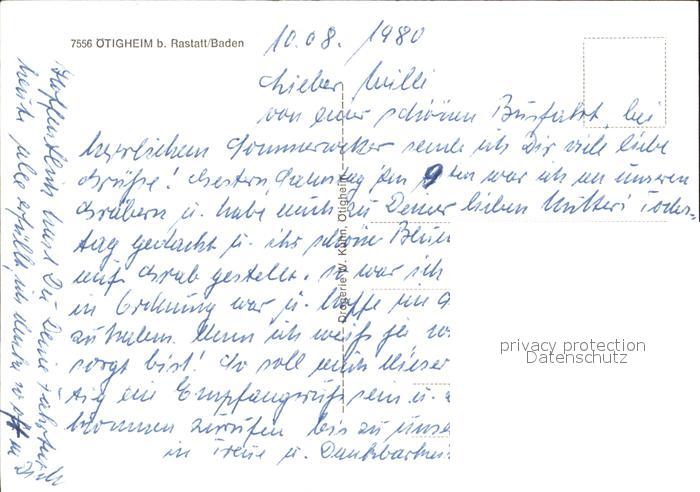 7556 ÖTIGHEIM b. Rastatt/Baden
10.08. 1980
Lieber Willi
von einer schönen Busfahrt, bei
herrlichem Sommerwetter sende ich Dir viele liebe
Grüsse! Gestern, Samstag den 9ten war ich an unseren
Gräbern u. habe auch zu Deiner lieben Mutter's Todes-
tag gedacht u. ihr schöne Blum
aufs Grab gestellt. so war ich
in Ordnung war u. hoffe
zu haben. Denn ich weiß ja
sorgt bist! So soll auch dieser
ein Empfangsgruß sein u.
kommen zurufen bis zu
in Treue u. Dankbarkei
Hoffentlich hast Du Deine
heute alle erfüllt, ich denke so oft an Dich
Drogerie W. Kühn, Ötigheim
privacy protection
Datenschutz